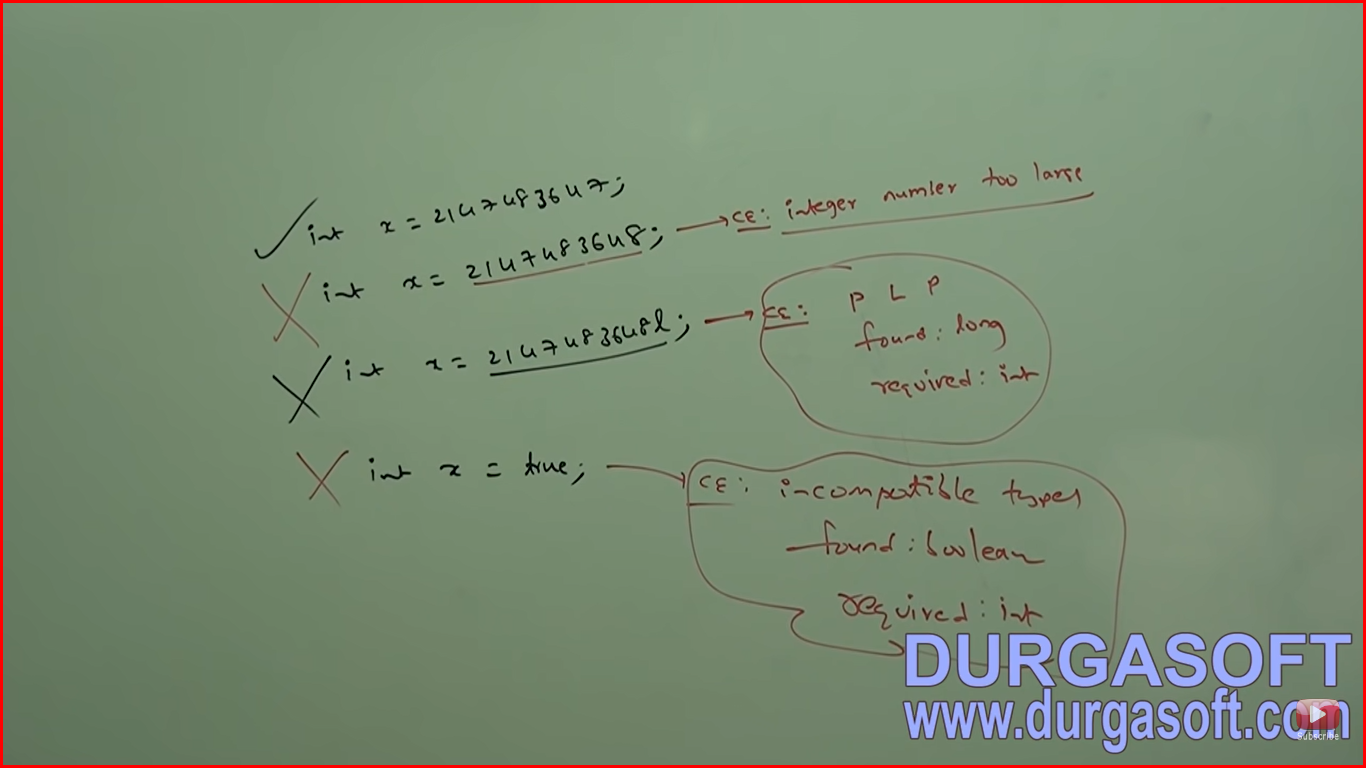 int x = 2147483647;
int x = 2147483648; → CE: integer number too large
int x = 2147483648l; → CE: P L P
found: long
required: int
int x = true; → CE: incompatible types
found: boolean
required: int
DURGASOFT
www.durgasoft.com
Subscribe